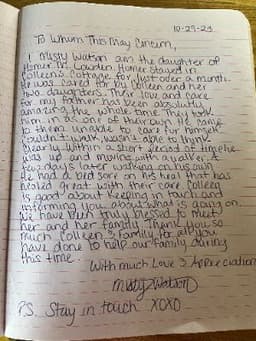 10-29-23
To Whom This May Concern,
I Misty Watson am the daughter of
Homer M. Lawden. Homer stayed in
Colleen's Cottage for just over a month.
He was cared for by Colleen and her
two daughters. Their love and care
for my father has been absolutely
amazing the whole time. They took
him in as one of their own. He came
to them unable to care for himself
couldn't walk, wasn't able to think
clearly. Within a short period of time he
was up and moving with a walker. A
few days later walking on his own.
He had a bed sore on his heal that has
healed great with their care. Colleen
is good about keeping in touch and
informing you about what is going on.
We have been truly blessed to meet
her and her family. Thank you so
much Colleen & family for all you
have done to help our family during
this time.
With much Love & Appreciation
Misty Watson
P.S. Stay in touch XOXO